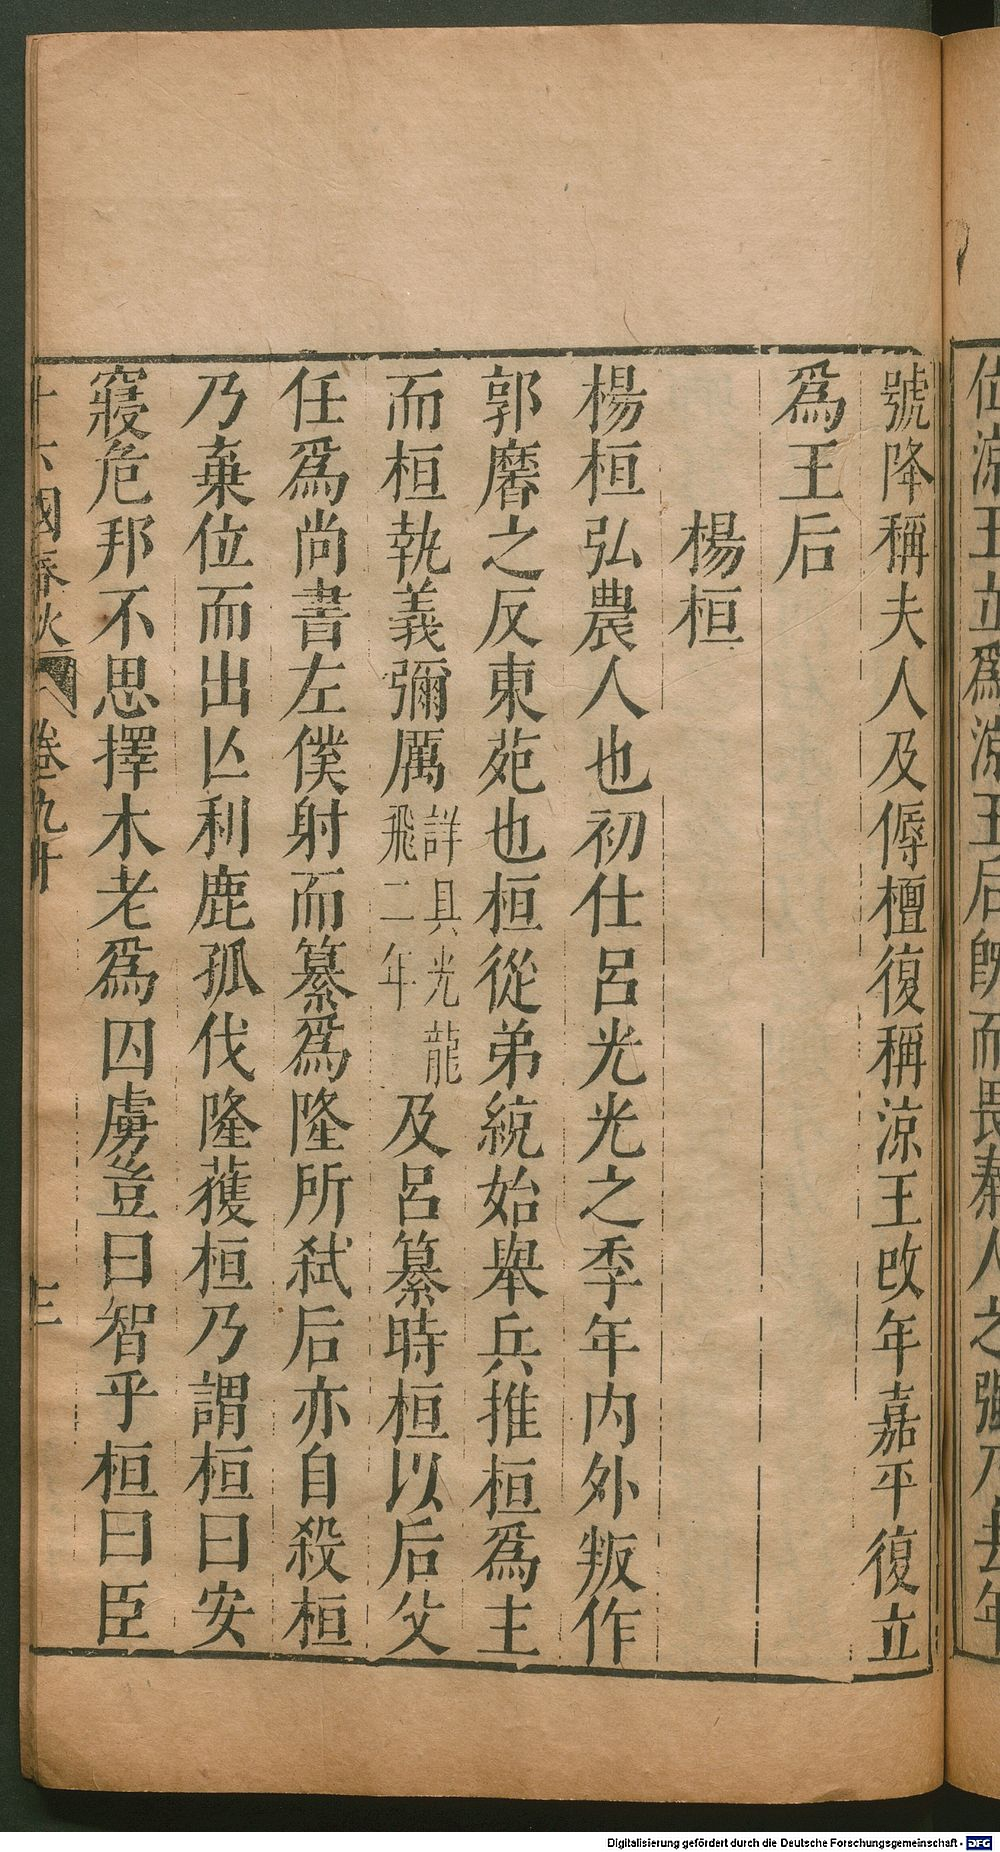 位涼王立爲涼王后既而畏秦人之強乃去年
號降稱夫人及傉檀復稱涼王改年嘉平復立
爲王后
楊桓
楊桓弘農人也初仕呂光光之季年內外叛作
郭黁之反東苑也桓從弟統始舉兵推桓爲主
而桓執義彌厲詳具光龍飛二年及呂纂時桓以后父
任爲尚書左僕射而纂爲隆所弑后亦自殺桓
乃棄位而出亾利鹿孤伐隆獲桓乃謂桓曰安
寢危邦不思擇木老爲囚虜豈曰智乎桓曰臣
十六國春秋 卷九十 三
Digitalisierung gefördert durch die Deutsche Forschungsgemeinschaft - DFG